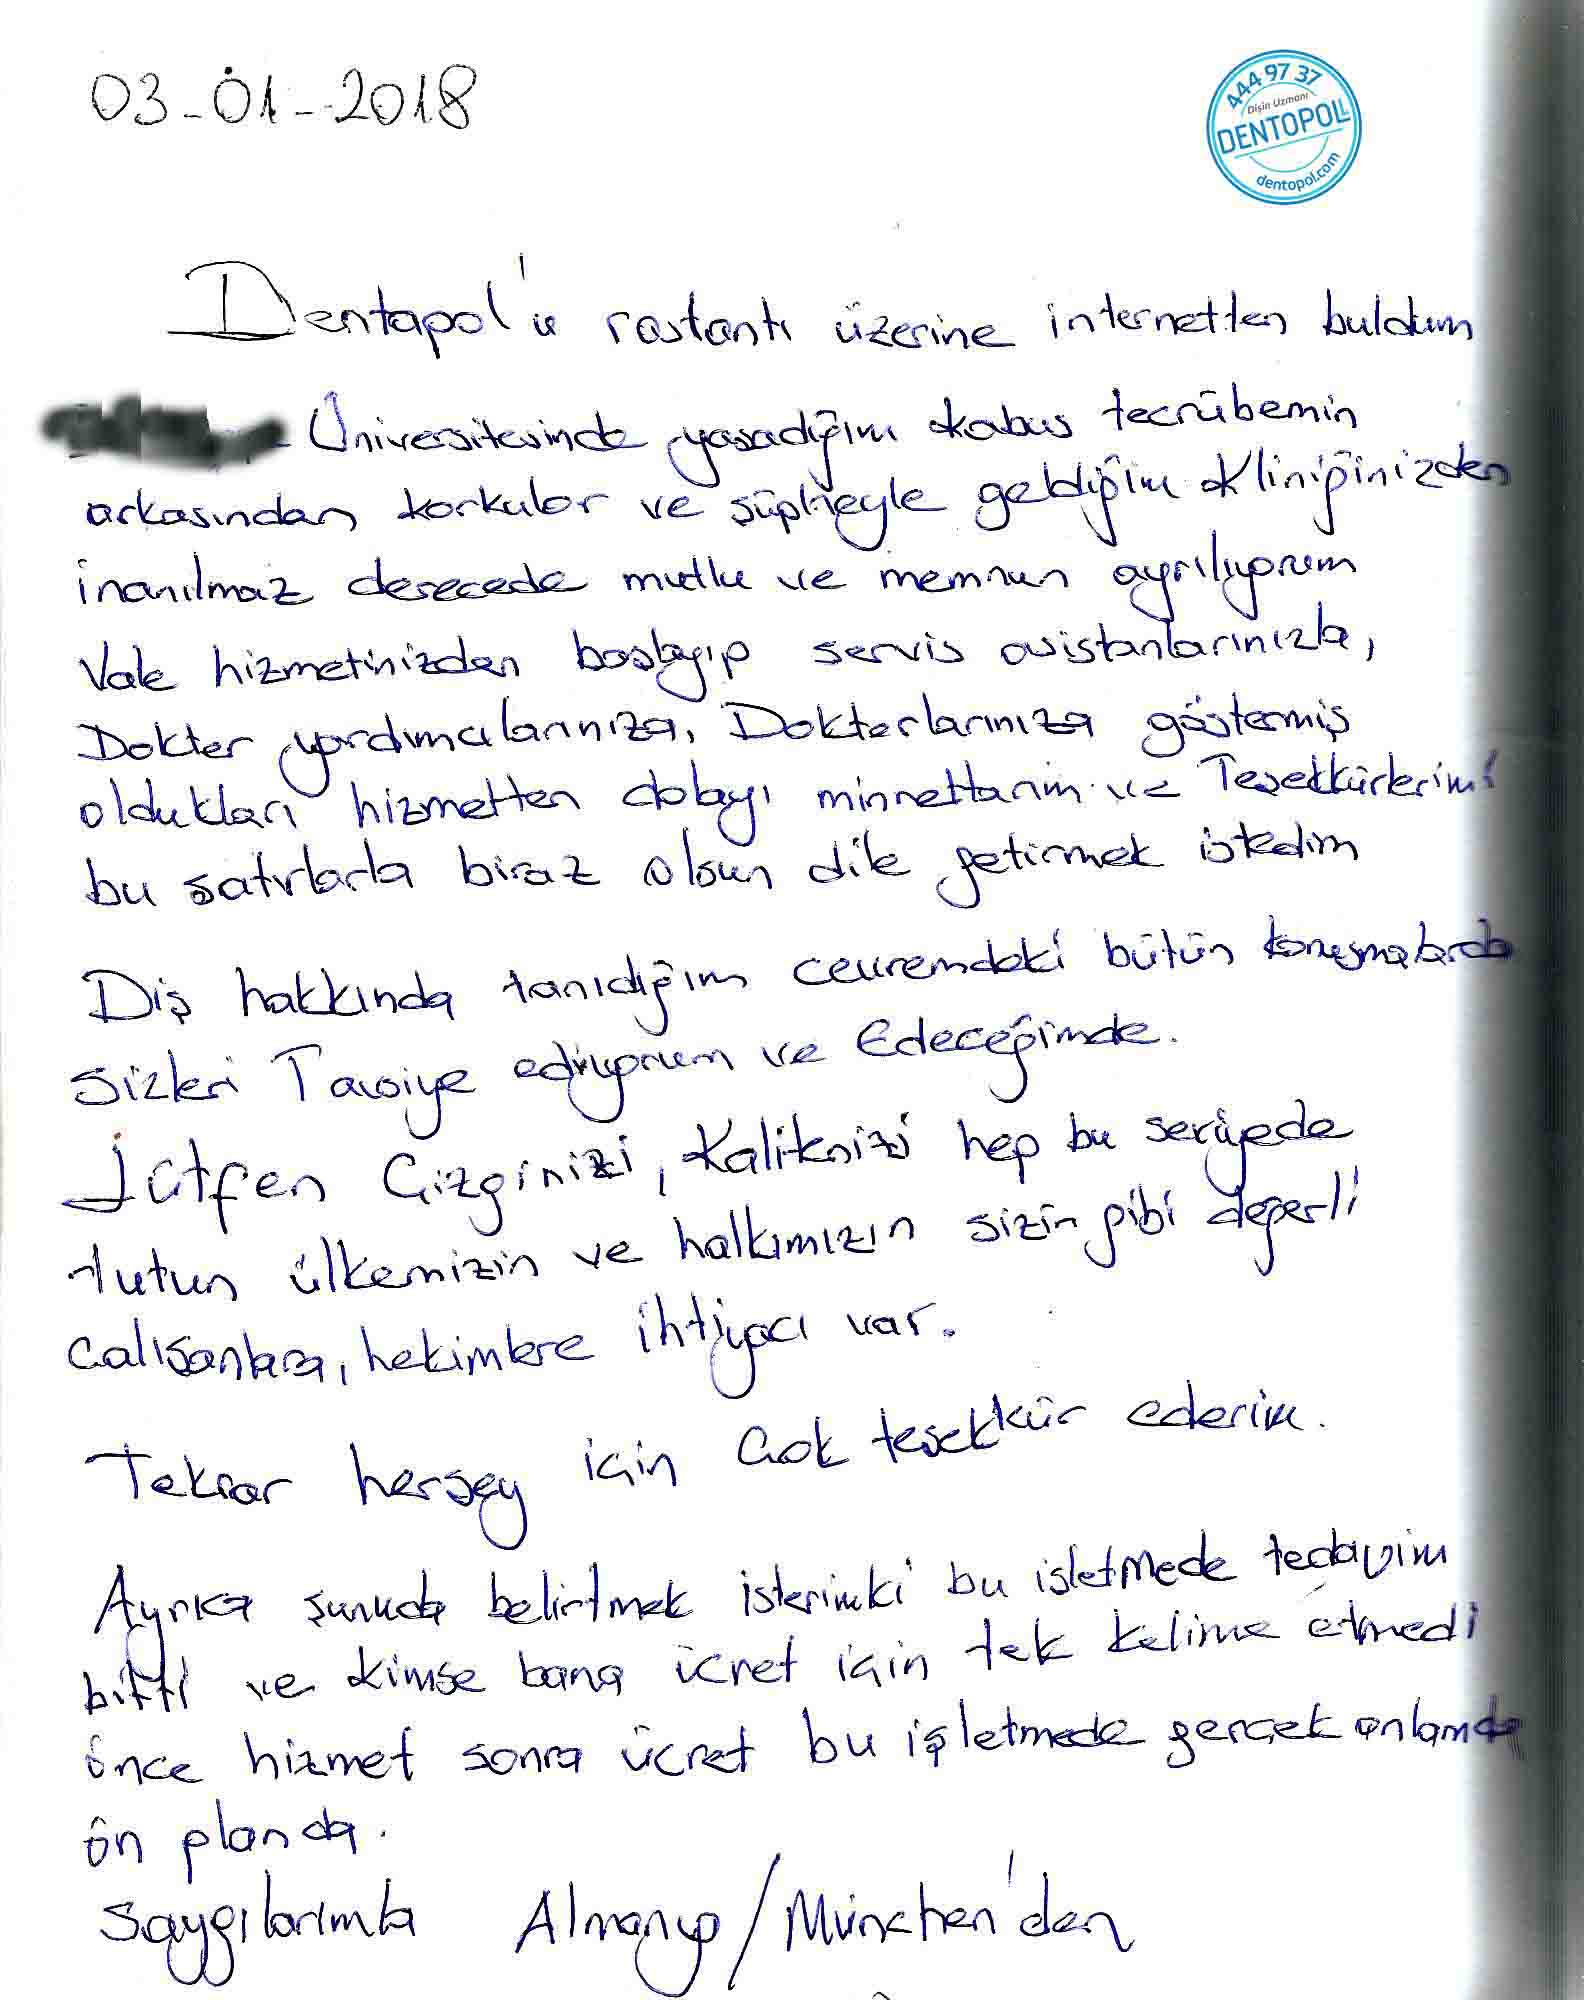 03-01-2018
444 97 37
Dişin Uzmanı
DENTOPOL
dentopol.com
Dentapol'u rastantı üzerine internetten buldum
Üniversitesinde yaşadığım kabus tecrübemin
arkasından korkular ve şüpheyle geldiğim Kliniğinizden
inanılmaz derecede mutlu ve memnun ayrılıyorum
Vale hizmetinizden başlayıp servis asistanlarınızla,
Dokter yardımcılarınıza, Dokterlarınıza göstermiş
oldukları hizmetten dolayı minnettarım ve Teşekkürlerimi
bu satırlarla biraz olsun dile getirmek istedim
Diş hakkında tanıdığım cevremdeki bütün konuşmalarda
sizleri Tavsiye ediyorum ve Edeceğimde.
Lütfen Çizginizi, Kalitenizi hep bu seviyede
tutun ülkemizin ve halkımızın sizin gibi değerli
calısanlara, hekimlere ihtiyacı var.
Tekrar herşey için Çok teşekkür ederim.
Ayrıca şunuda belirtmek isterimki bu isletmede tedavim
bitti ve kimse bana ücret için tek kelime etmedi
önce hizmet sonra ücret bu işletmede gerçek anlamda
ön planda.
Saygılarımla Almanya/München'den